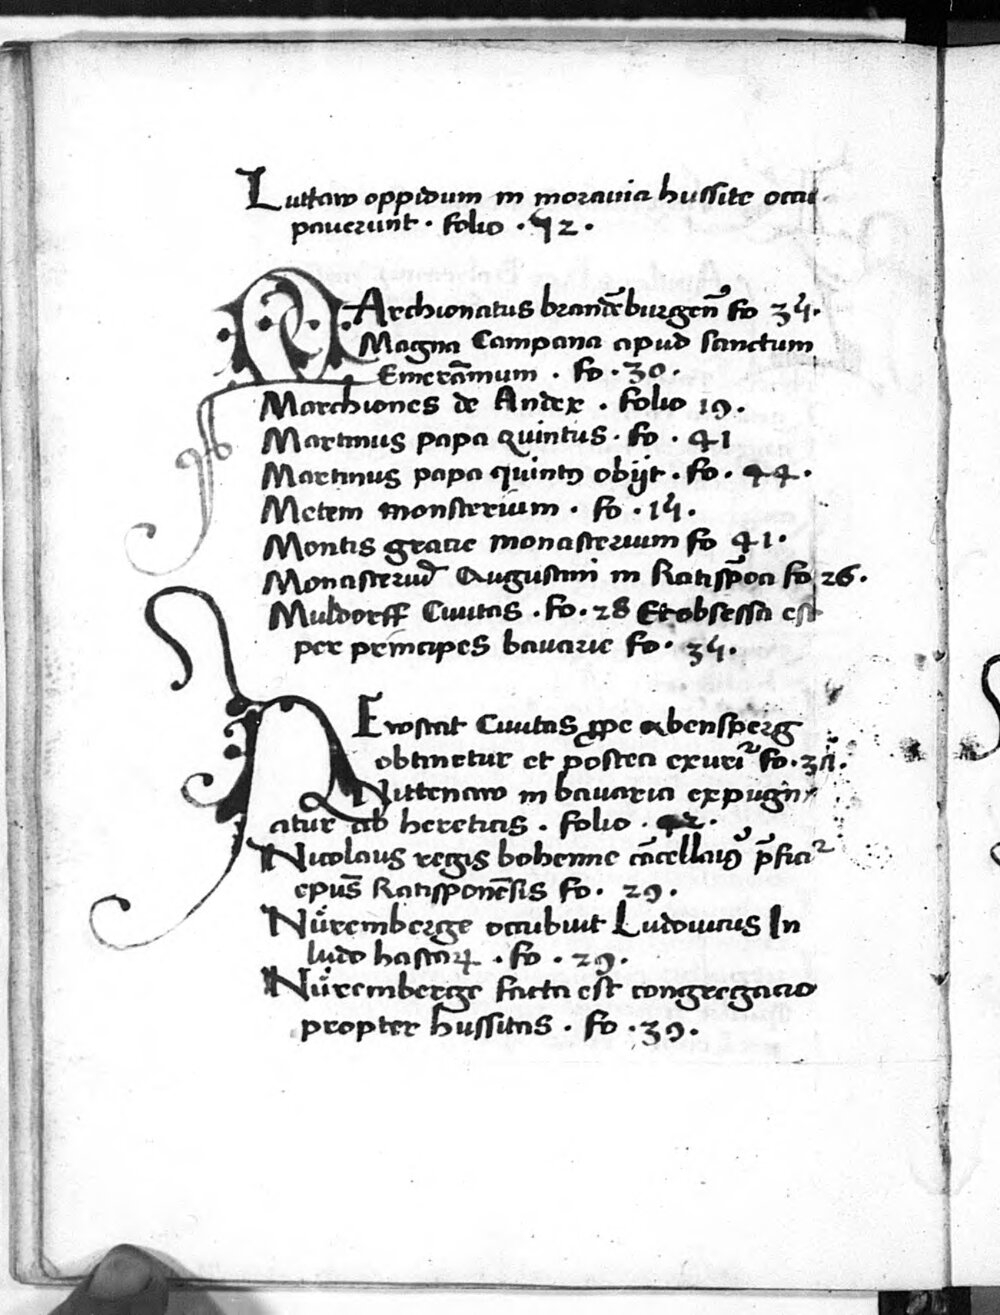 Luttaw oppidum in moravia hussite occu
paverunt · folio · 42 ·
MArchionatus brandēburgen̄ fo 35 ·
Magna Campana apud sanctum
Emerāmum · fo · 30 ·
Marchiones de Andex · folio 19 ·
Martinus papa quintus · fo · 41
Martinus papa quintꝰ obijt · fo · 44 ·
Metem monsterium · fo · 15 ·
Montis gracie monasterium fo 41 ·
Monasteriū Augustini in Ratisp̄oa fo 26 ·
Muldorff Civitas · fo · 28 Et obsessa est
per principes bavarie fo · 35 ·
NEvostat Civitas ꝓpe abensperg
obtinetur et postea exuri᷑ fo ·
Nittenaw in bavaria expugn
atur ab hereticis · folio · 42 ·
Nicolaus regis bohemie cācellariꝰ p̄fici᷑
epūs Ratisponēsis fo · 29 ·
Nüremberge occubuit Ludovicus In
ludo hastaꝝ · fo · 29 ·
Nüremberge facta est congregacio
propter hussitas · fo · 39 ·